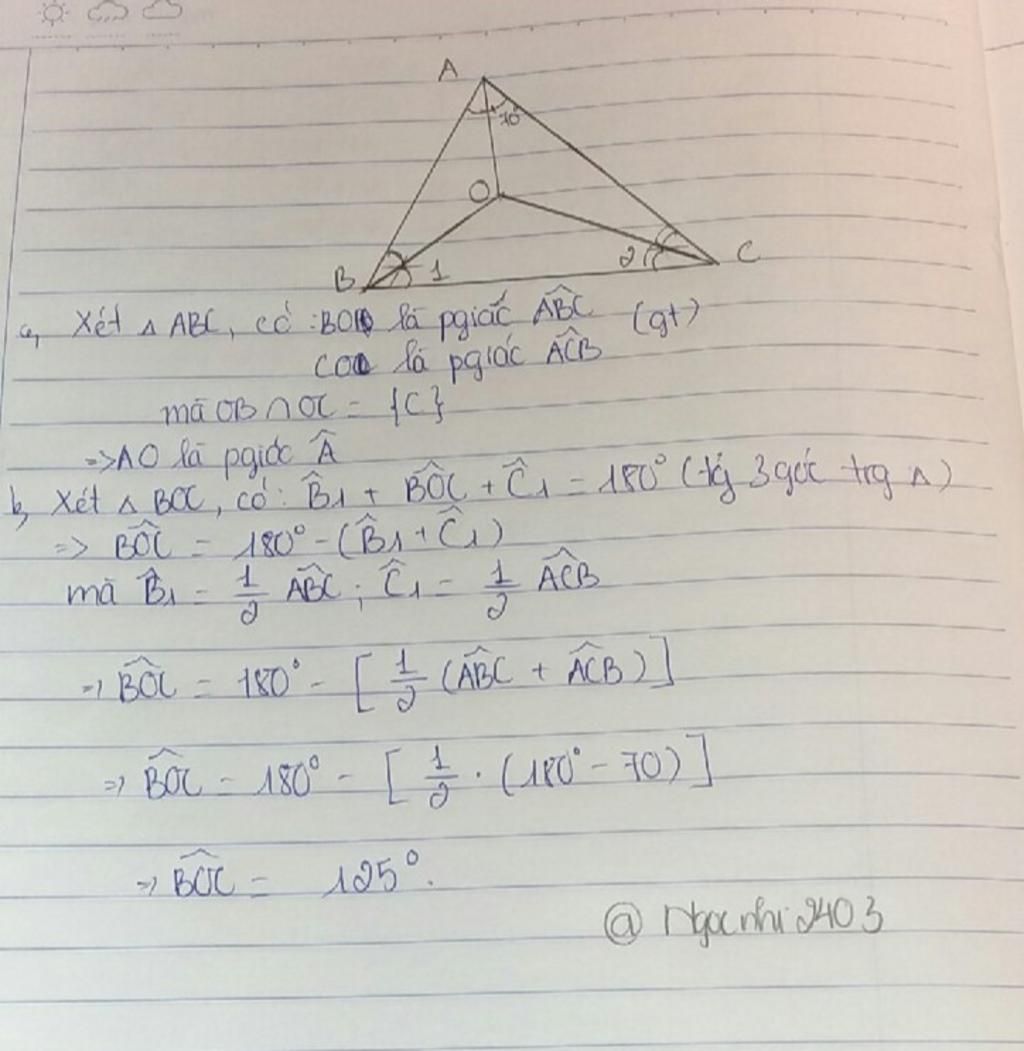 A
70°
O
B 1 2 C
a, Xét △ ABC, có : BO là pgiác \widehat{ABC} (gt)
CO là pgiác \widehat{ACB}
mà OB ∩ OC = {C}
=> AO là pgiác \widehat{A}
b, Xét △ BOC, có : \widehat{B}1 + \widehat{BOC} + \widehat{C}1 = 180° (tg 3 góc trg △)
=> \widehat{BOC} = 180° - (\widehat{B}1 + \widehat{C}1)
mà \widehat{B}1 = 1/2 \widehat{ABC} ; \widehat{C}1 = 1/2 \widehat{ACB}
=> \widehat{BOC} = 180° - [ 1/2 (\widehat{ABC} + \widehat{ACB}) ]
=> \widehat{BOC} = 180° - [ 1/2 . (180° - 70) ]
=> \widehat{BOC} = 125°.
@ Ngocnhi2403